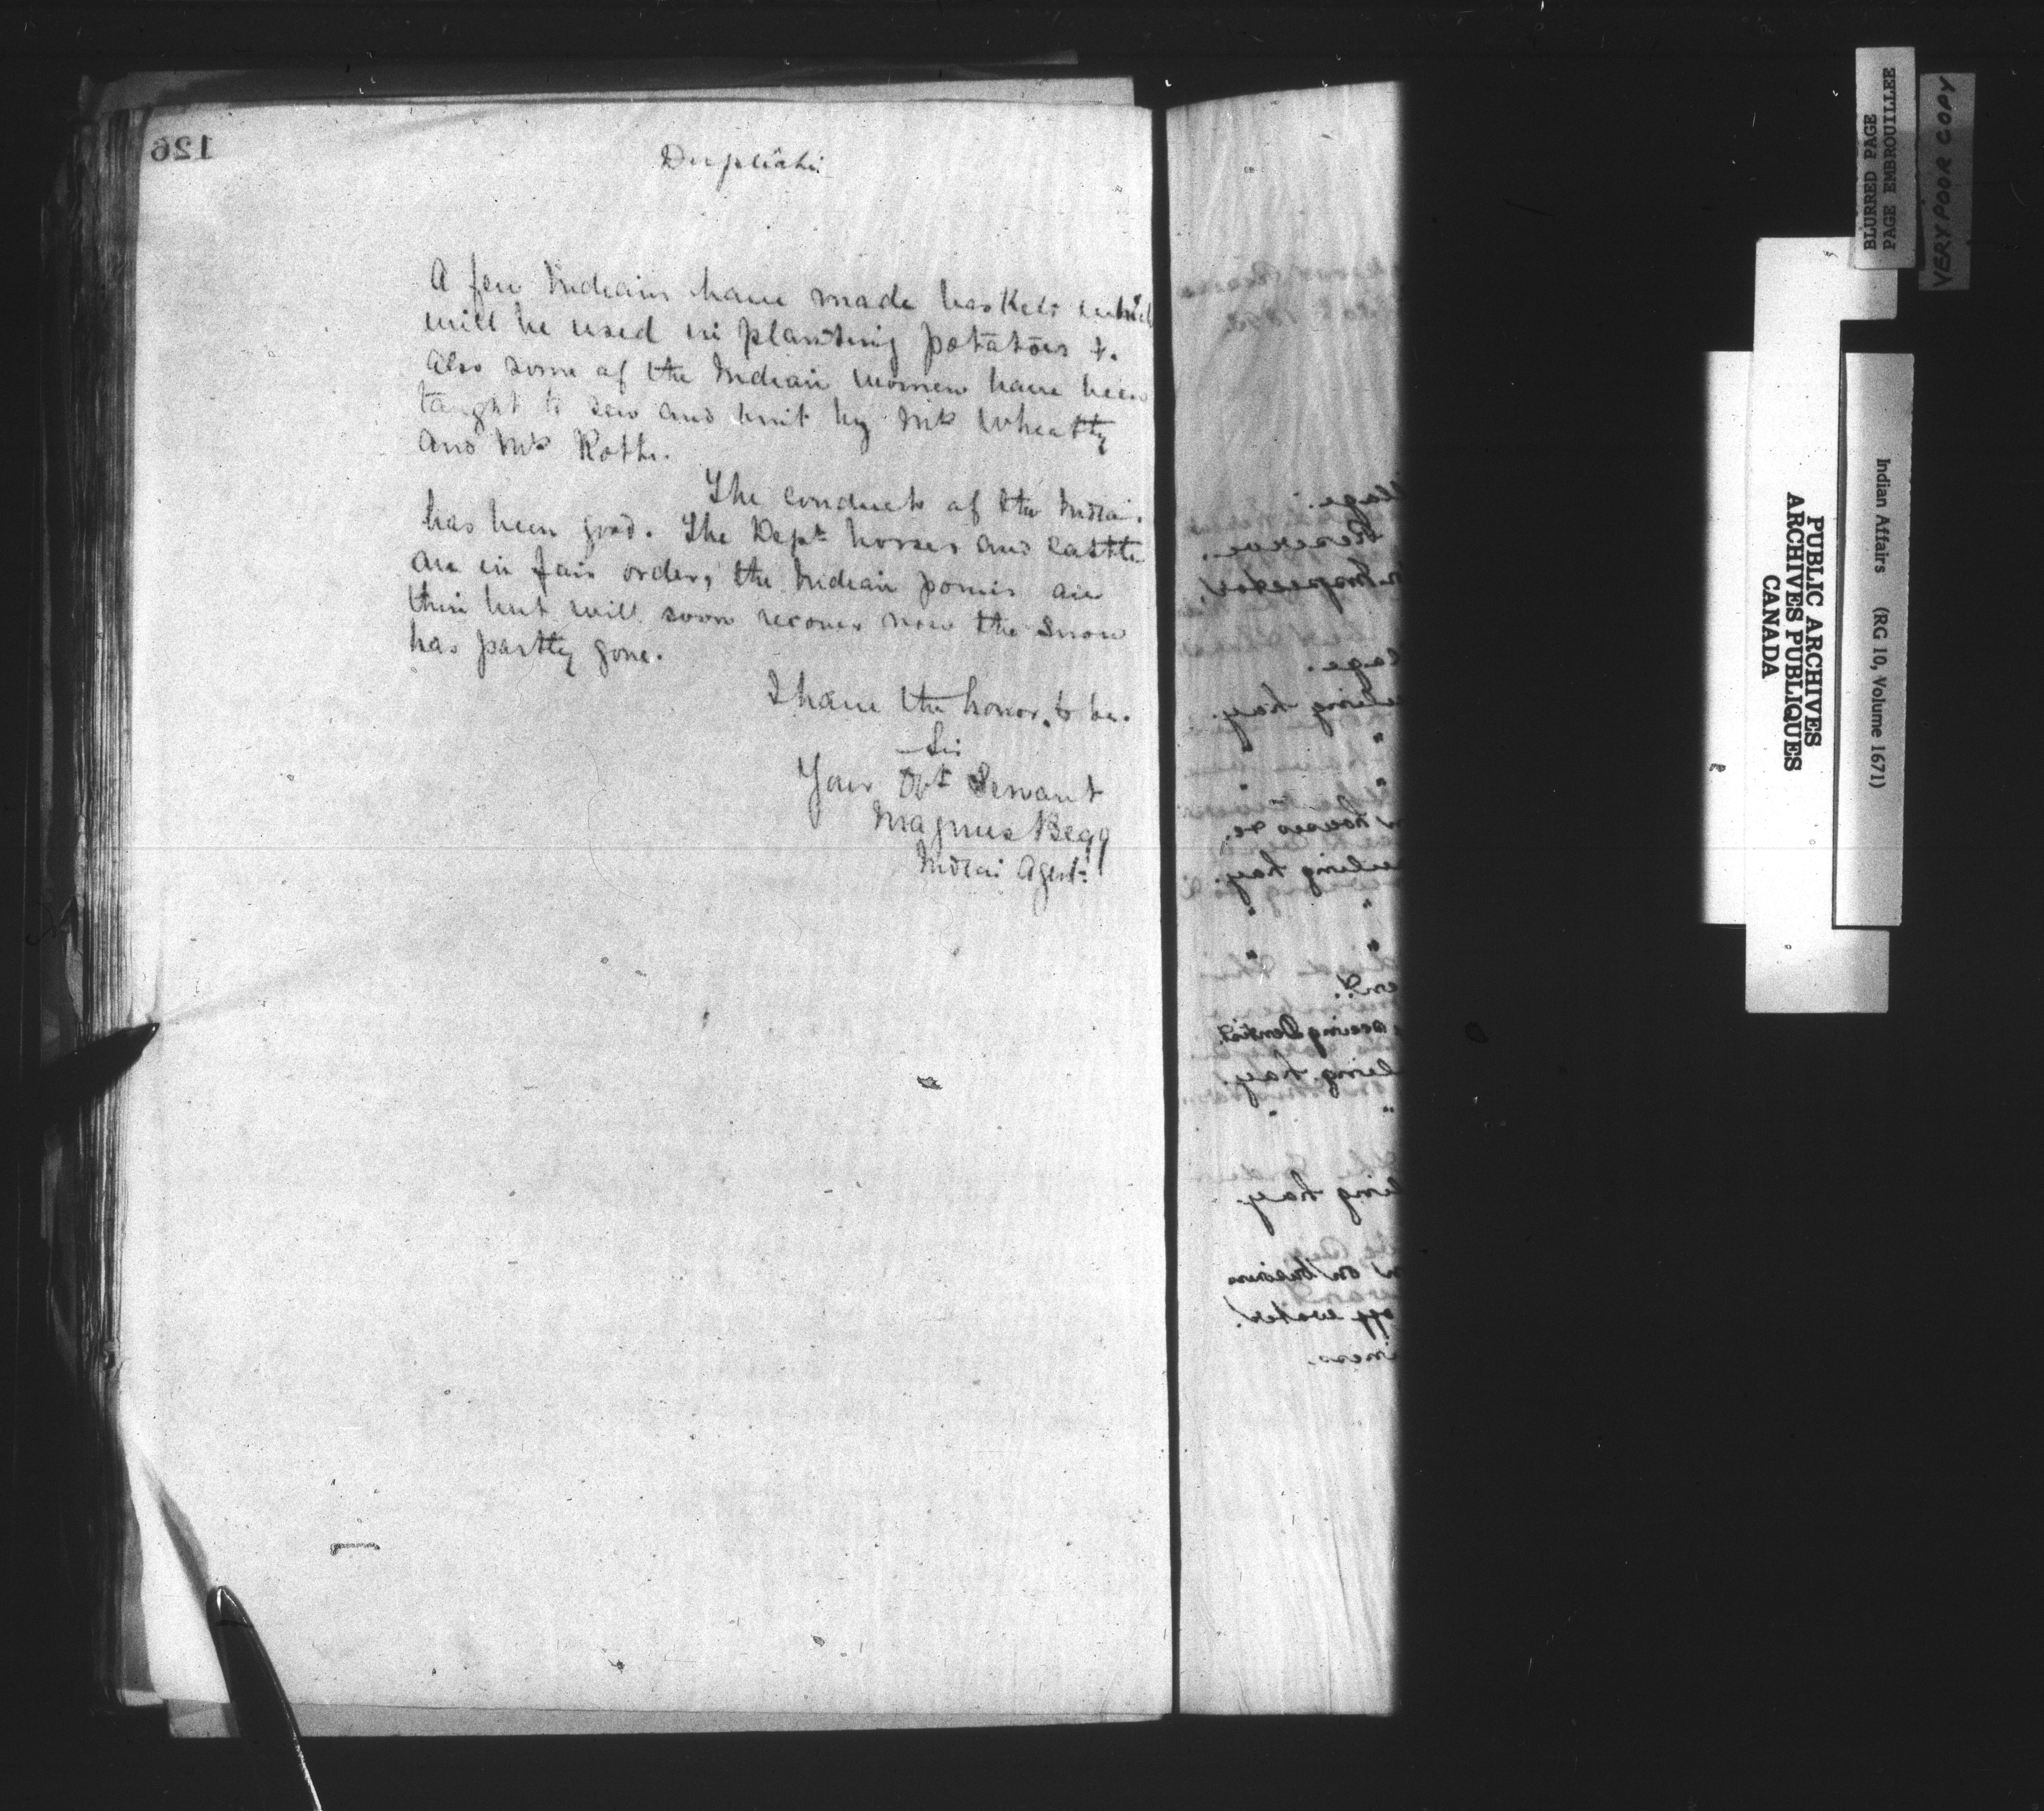 126
Duplicate
A few Indians have made baskets which
will be used in planting potatoes &.
Also some of the Indian women have been
taught to sew and knit by Mrs Wheatly
and Mrs Rothe.
The conduct of the India.
has been good. The Dept horses and cattle
are in fair order, the Indian ponies are
thin but will soon recover now the snow
has partly gone.
I have the honor, to be.
Sir
Your Obt Servant
Magnus Begg
Indian Agent
llage.
Reserve.
Inspector,
lage.
hay.
houses &c.
hauling hay.
seeing Dentist
ling hay.
ling hay.
on business
off water.
iness.
BLURRED PAGE
PAGE EMBROUILLEE
VERY POOR COPY
PUBLIC ARCHIVES
ARCHIVES PUBLIQUES
CANADA
Indian Affairs (RG 10, Volume 1671)